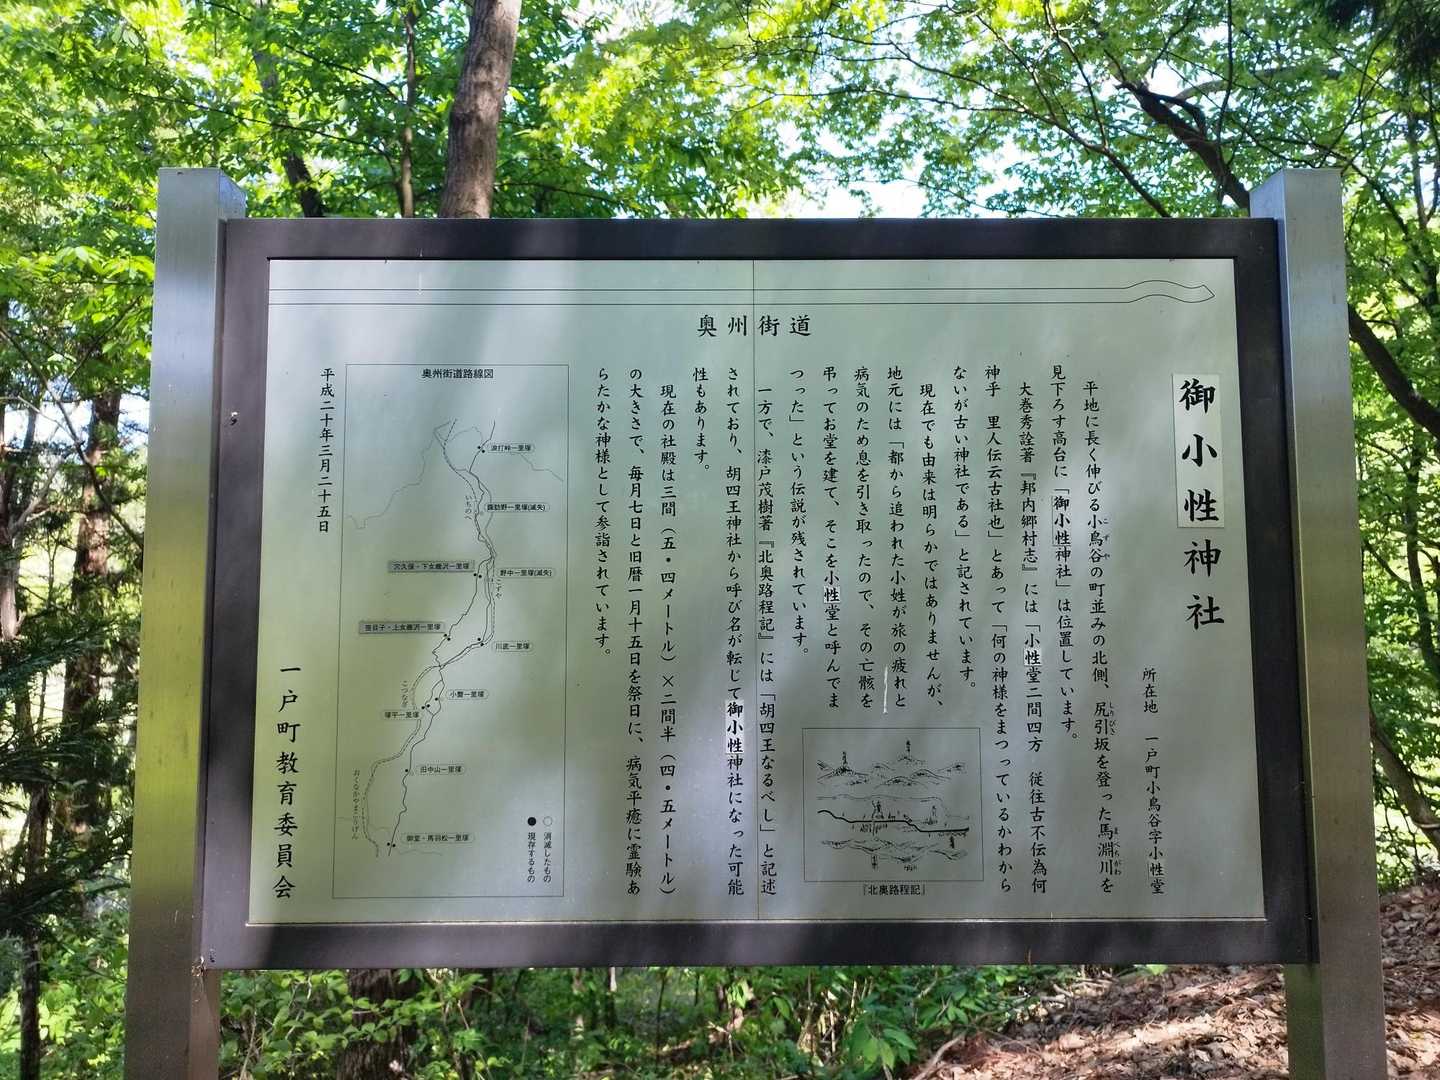 奥州街道
御小性神社
所在地　一戸町小鳥谷字小性堂
平地に長く伸びる小鳥谷の町並みの北側、尻引坂を登った馬淵川を
こずや
しりびき
まべちがわ
見下ろす高台に「御小性神社」は位置しています。
大巻秀詮著『邦内郷村志』には「小性堂二間四方　従往古不伝為何
神乎　里人伝云古社也」とあって「何の神様をまつっているかわから
ないが古い神社である」と記されています。
現在でも由来は明らかではありませんが、
地元には「都から追われた小姓が旅の疲れと
病気のため息を引き取ったので、その亡骸を
弔ってお堂を建て、そこを小性堂と呼んでま
つった」という伝説が残されています。
一方で、漆戸茂樹著『北奥路程記』には「胡四王なるべし」と記述
されており、胡四王神社から呼び名が転じて御小性神社になった可能
性もあります。
現在の社殿は三間（五・四メートル）×二間半（四・五メートル）
の大きさで、毎月七日と旧暦一月十五日を祭日に、病気平癒に霊験あ
らたかな神様として参詣されています。
『北奥路程記』
奥州街道路線図
浪打峠一里塚
いちのへ
諏訪野一里塚(滅失)
穴久保・下女鹿沢一里塚
野中一里塚(滅失)
こずや
笹目子・上女鹿沢一里塚
川底一里塚
こつなぎ
小繋一里塚
塚平一里塚
旧中山一里塚
おくなかやまこうげん
御堂・馬羽松一里塚
○ 消滅したもの
● 現存するもの
平成二十年三月二十五日
一戸町教育委員会